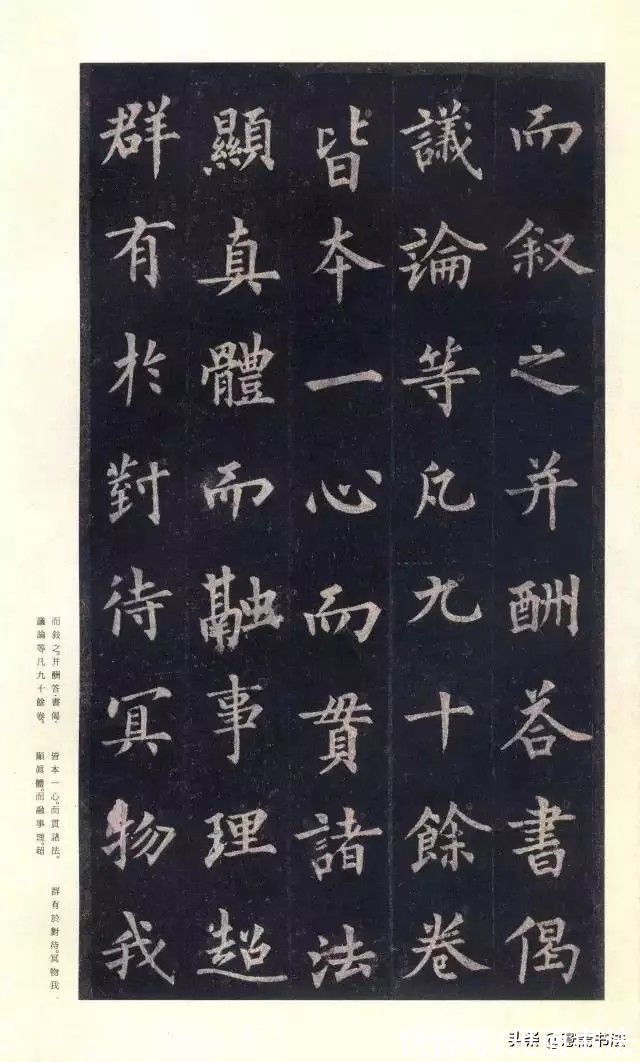 而叙之并酬荅書偈
議論等凡九十餘卷
皆本一心而貫諸法
顯真體而融事理超
群有於對待冥物我
而敍之。并酬答書偈
議論等凡九十餘卷。
皆本一心。而貫諸法。
顯眞體。而融事理。超
群有於對待。冥物我
头条
书法